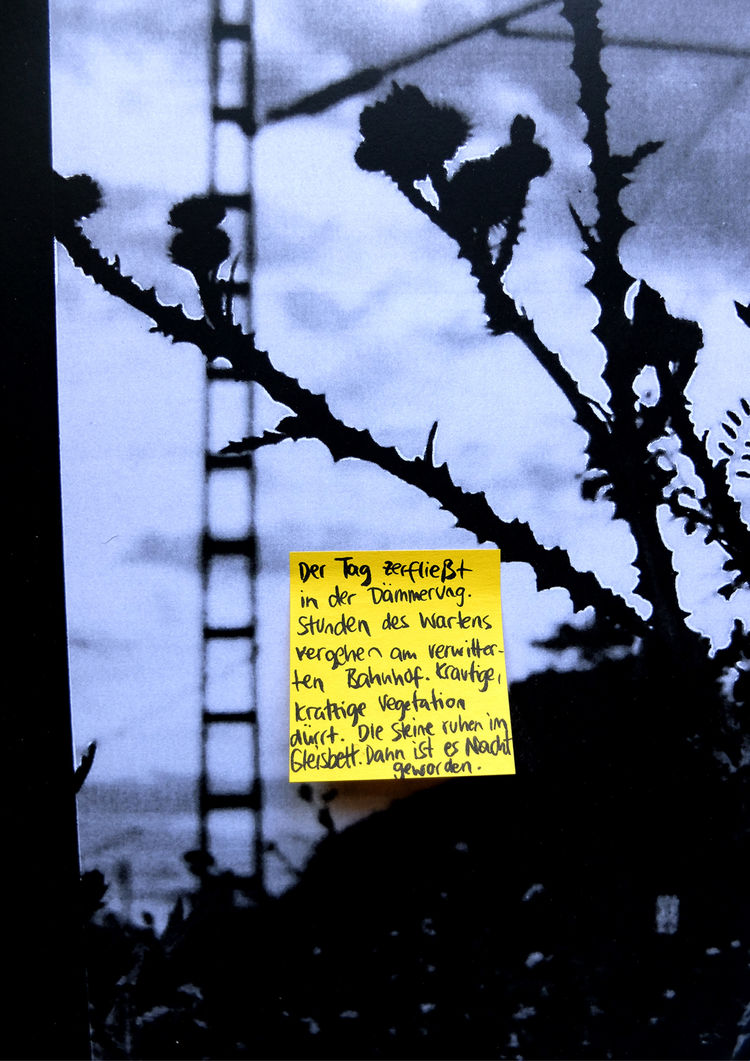 Der Tag zerfließt
in der Dämmerung.
Stunden des Wartens
vergehen am verwitter-
ten Bahnhof. Krautige,
kräftige Vegetation
dürrt. Die Steine ruhen im
Gleisbett. Dann ist es Nacht
geworden.